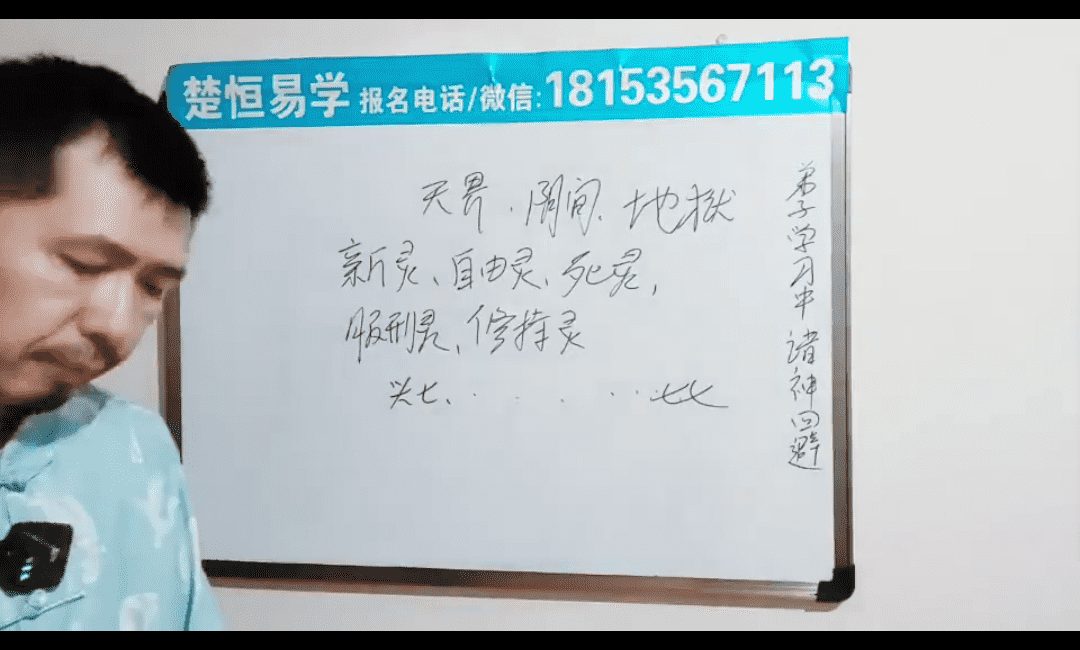 楚恒易学 报名电话/微信:18153567113
天界.阴间.地狱
新灵、自由灵、死灵,
服刑灵、修持灵
头七、· · · · · 七七
弟子学习中 诸神回避